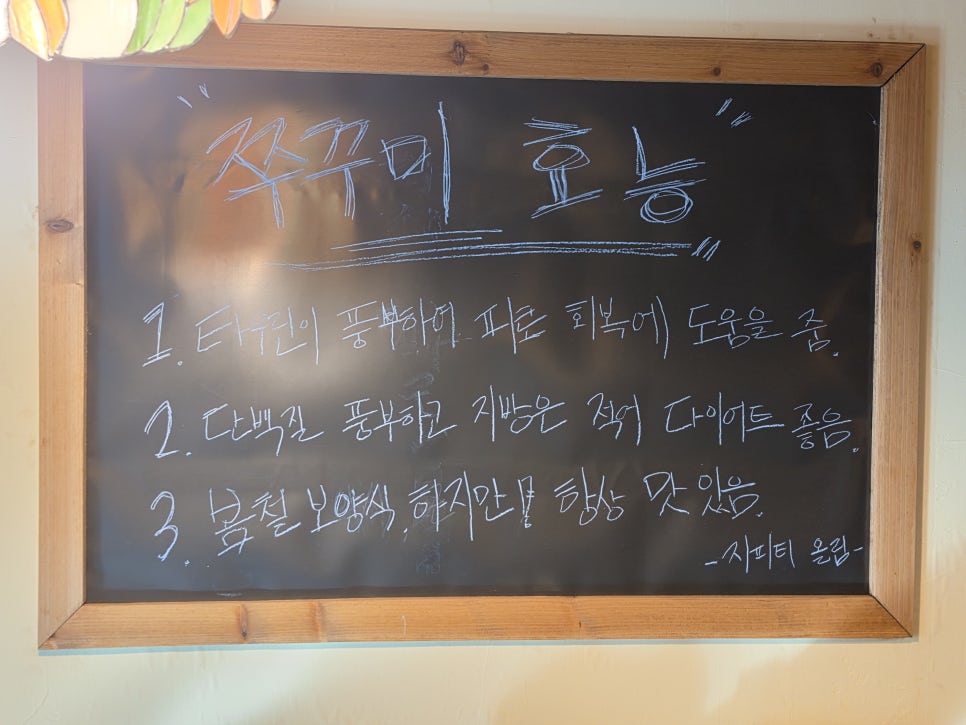 "쭈꾸미 효능"
1. 타우린이 풍부하여 피로 회복에 도움을 줌.
2. 단백질 풍부하고 지방은 적어 다이어트 좋음.
3. 봄철 보양식, 하지만 항상 맛 있음.
-지피티 올림-